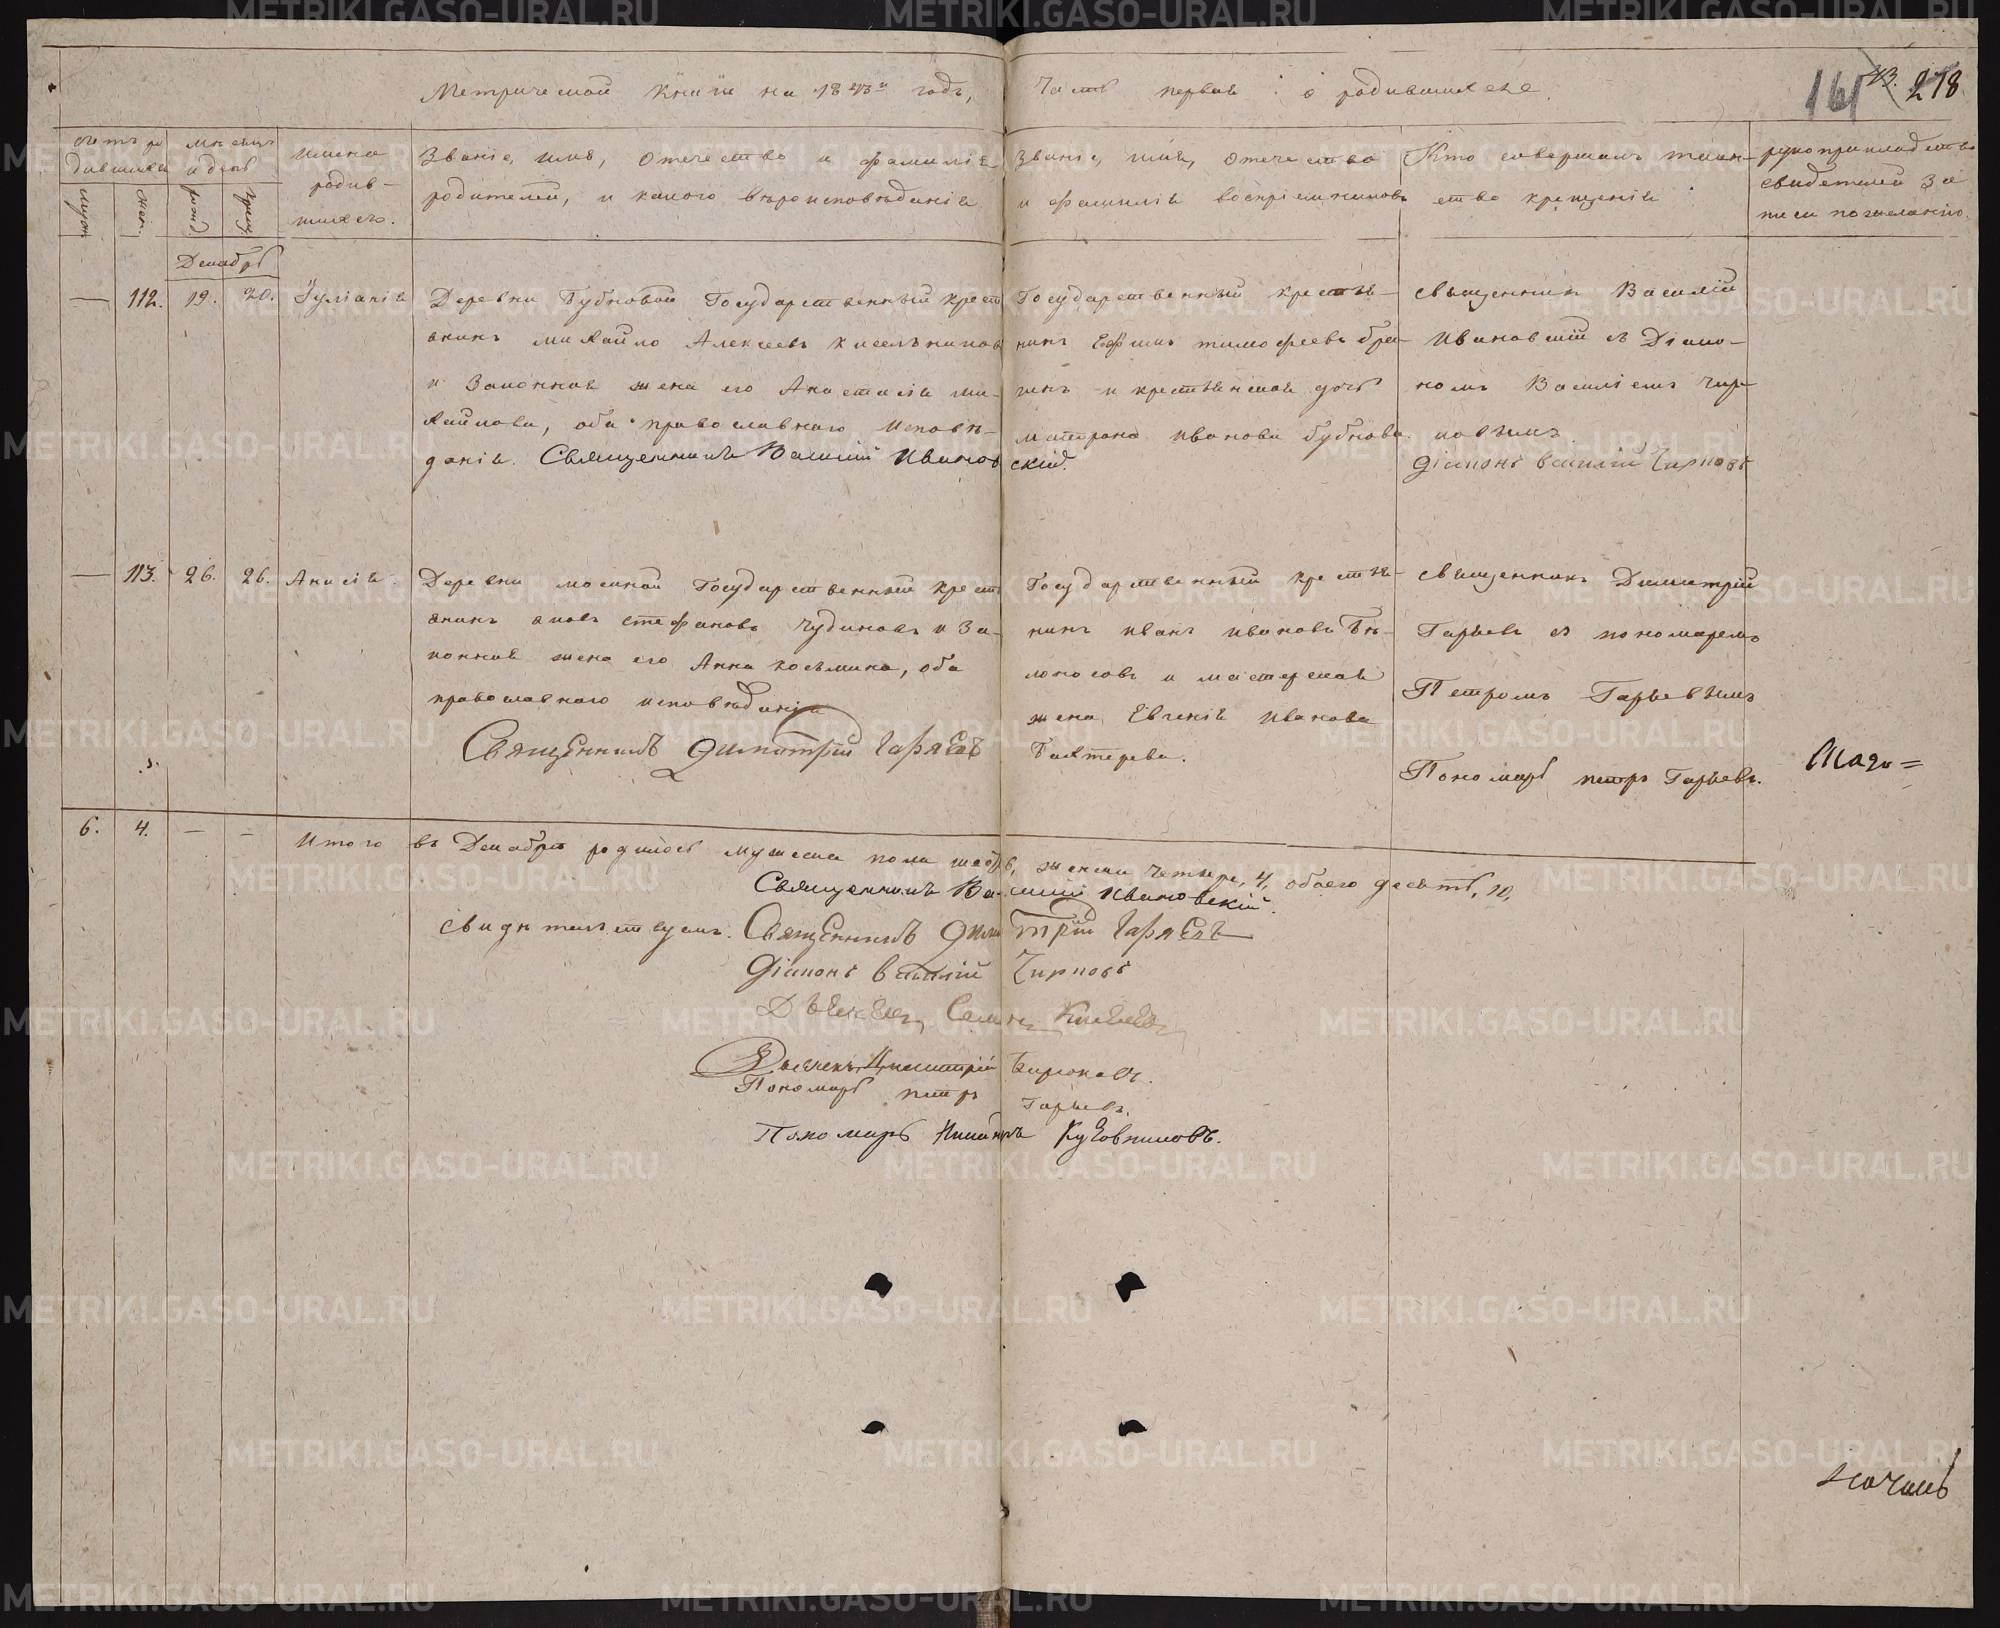 Метрической книги на 1843й годъ, Часть первая: о родившихся.
161 43. 218
счетъ ро
дившихся
муж. жен.
мѣсяцъ
и день
рожд. крещ.
имена
родив-
шихся.
Званіе, имя, отечество и фамилія
родителей, и какого вѣроисповѣданія
Званіе, имя, отечество
и фамилія воспріемниковъ
Кто совершалъ таин-
ство крещенія
рукоприкладство
свидетелей за
писи по желанію.
Декабрь
— 112. 19. 20. Іуліанія
Деревни Бубновой Государственный крест
янинъ михайло Алексеевъ Киселниковъ
и Законная жена его Анастасія ми-
хайлова, оба православнаго исповѣ-
данія. Священникъ Василій Ивановскій.
Государственный крестья-
нинъ Ефимъ тимофеевъ бра-
гинъ и крестьянская дочь
матрона иванова бубнова.
священник Василій
Ивановскій съ Діако-
номъ Василіемъ Чир-
ковымъ.
діаконъ василій Чирковъ
— 113. 26. 26. Анисія.
Деревни мосиной Государственный крест
янинъ яковъ стефановъ Чудиновъ и за-
конная жена его Анна косьмина, оба
православнаго исповѣданія
Священникъ Димитрій Гаряевъ
Государственный крестья-
нинъ иванъ ивановъ Бѣ-
лоносовъ и мастерская
жена Евгенія иванова
Бахтерева.
священникъ Димитрій
Гаряевъ съ пономаремъ
Петромъ Гаряевымъ
Пономарь петръ Гаряевъ.
6. 4. — — Итого въ Декабрѣ родилось мужеска пола шесть, 6, женска четыре, 4, обоего десять, 10,
Священникъ Василій Ивановскій.
свидѣтельствуемъ. Священникъ Димитрій Гаряевъ
діаконъ василій Чирковъ
Дьячекъ Димитрій Бирюковъ.
Пономарь петръ Гаряевъ.
Пономарь